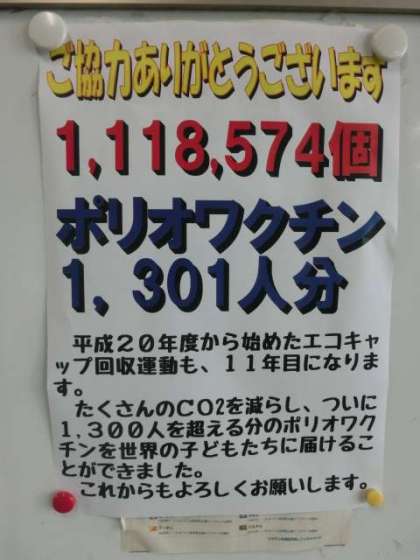 ご協力ありがとうございます
1,118,574個
ポリオワクチン
1,301人分
平成20年度から始めたエコキャ
ップ回収運動も、11年目になりま
す。
たくさんのCO2を減らし、ついに
1,300人を超える分のポリオワク
チンを世界の子どもたちに届けるこ
とができました。
これからもよろしくお願いします。